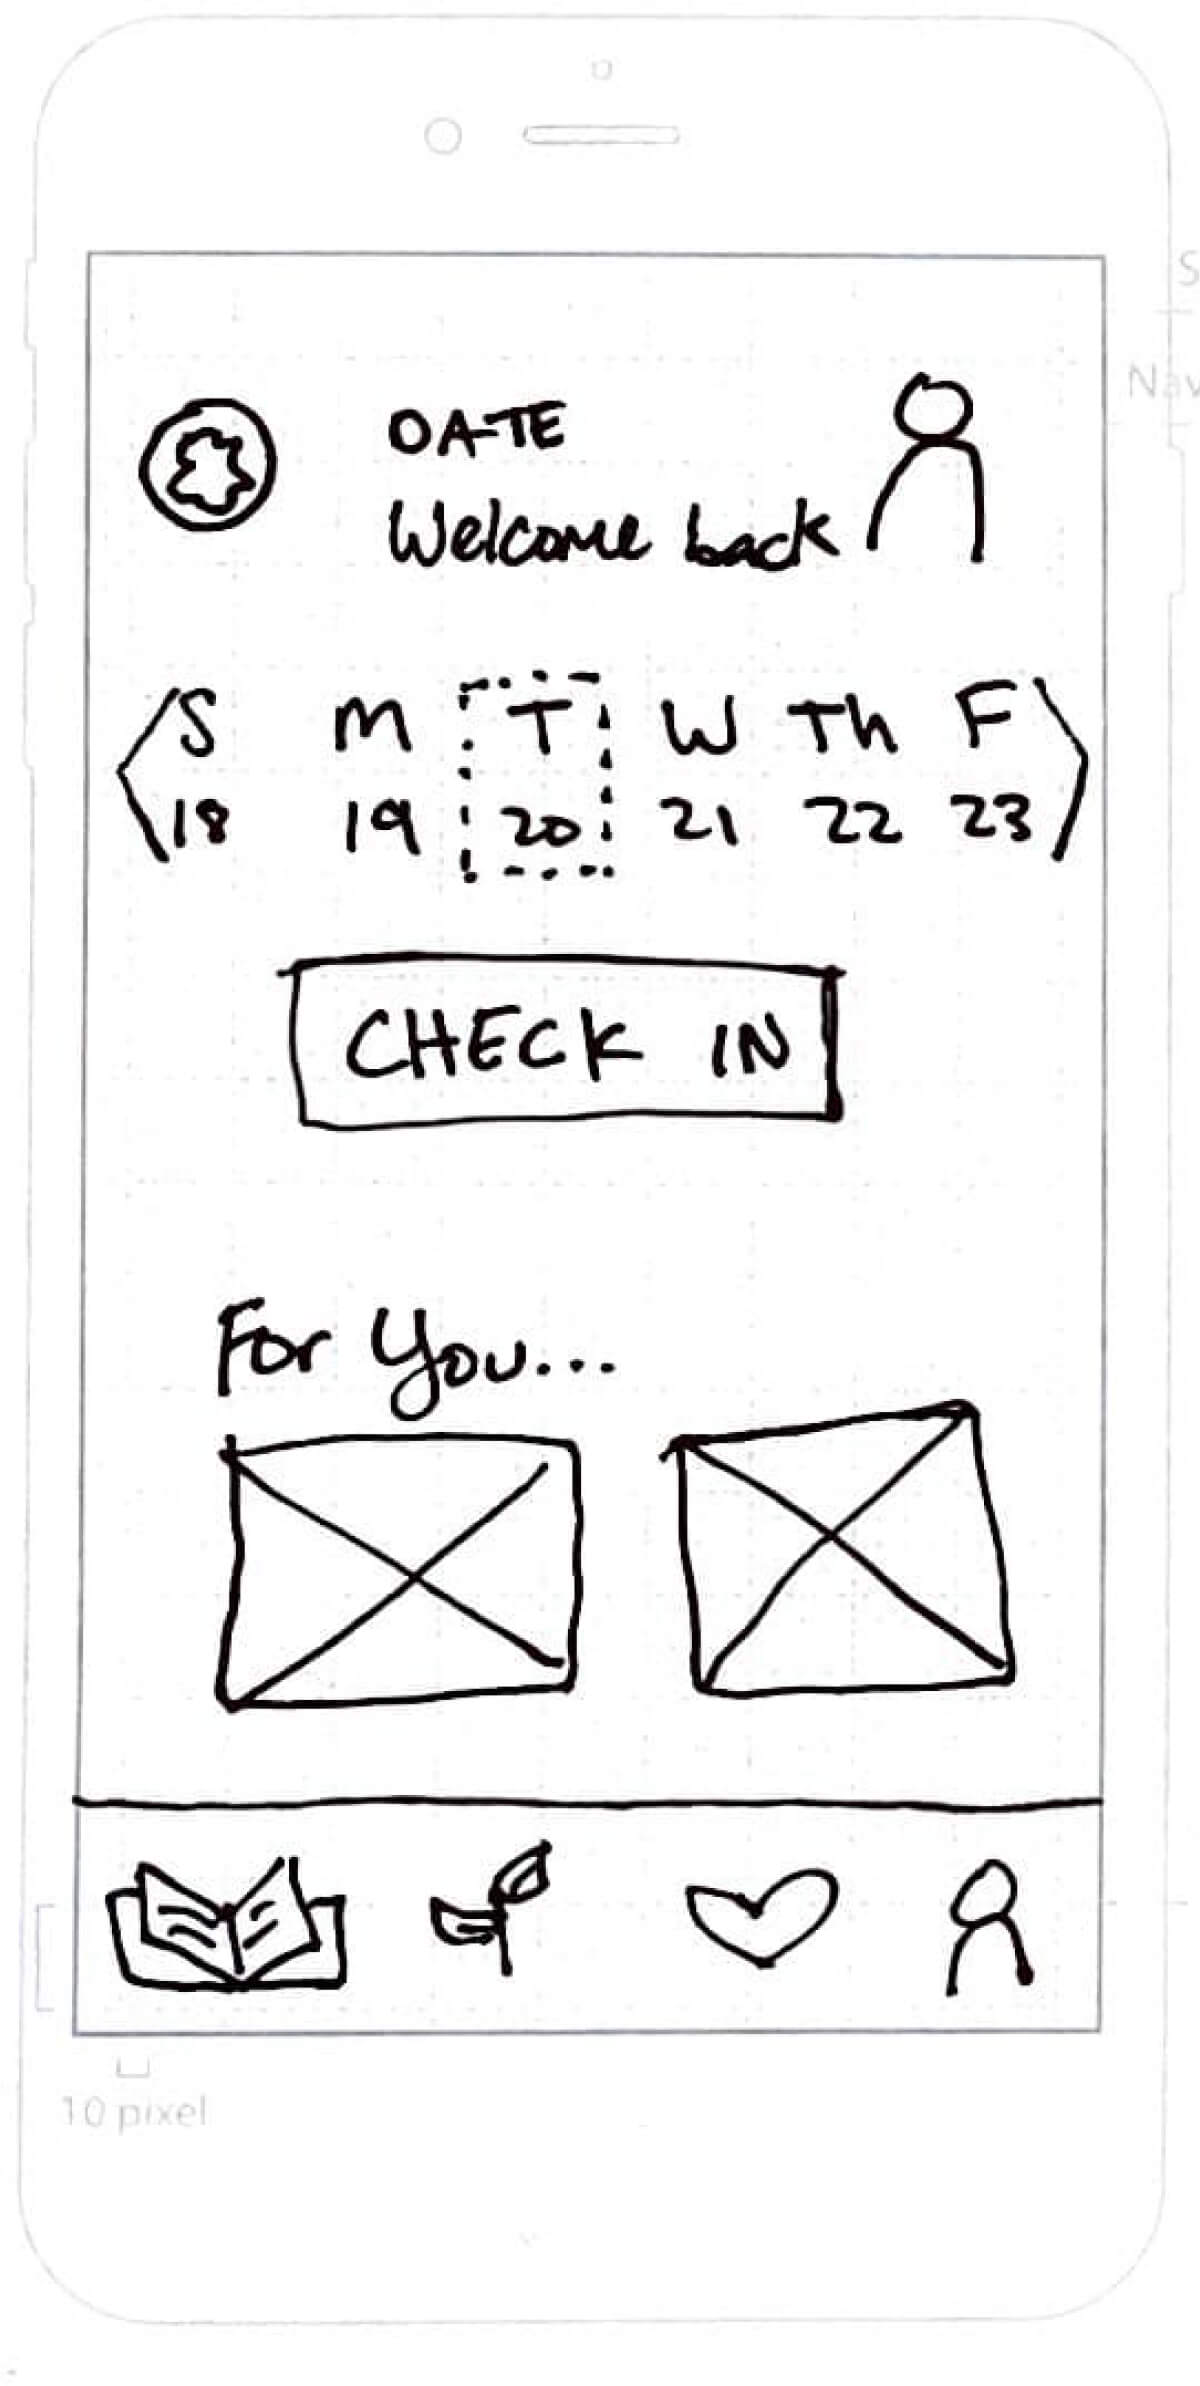 S
Nav
DATE
Welcome back
S M T W Th F
18 19 20 21 22 23
CHECK IN
For You...
10 pixel